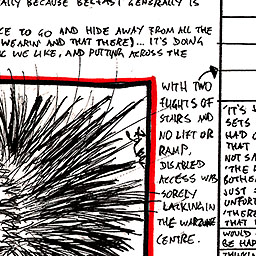 ALLY BECAUSE BELFAST GENERALLY IS
CE TO GO AND HIDE AWAY FROM ALL THE
WEARIN AND THAT THERE)... IT'S DOING
WE LIKE, AND PUTTING ACROSS THE
WITH TWO
FLIGHTS OF
STAIRS AND
NO LIFT OR
RAMP,
DISABLED
ACCESS WAS
SORELY
LACKING IN
THE WARZONE
CENTRE.
'IT'S
SETS
HAD
THAT
NOT SA
'THE
BOTHE
JUST
UNFORT
'THERE
THAT
WOULD
BE HAP
THINKIN